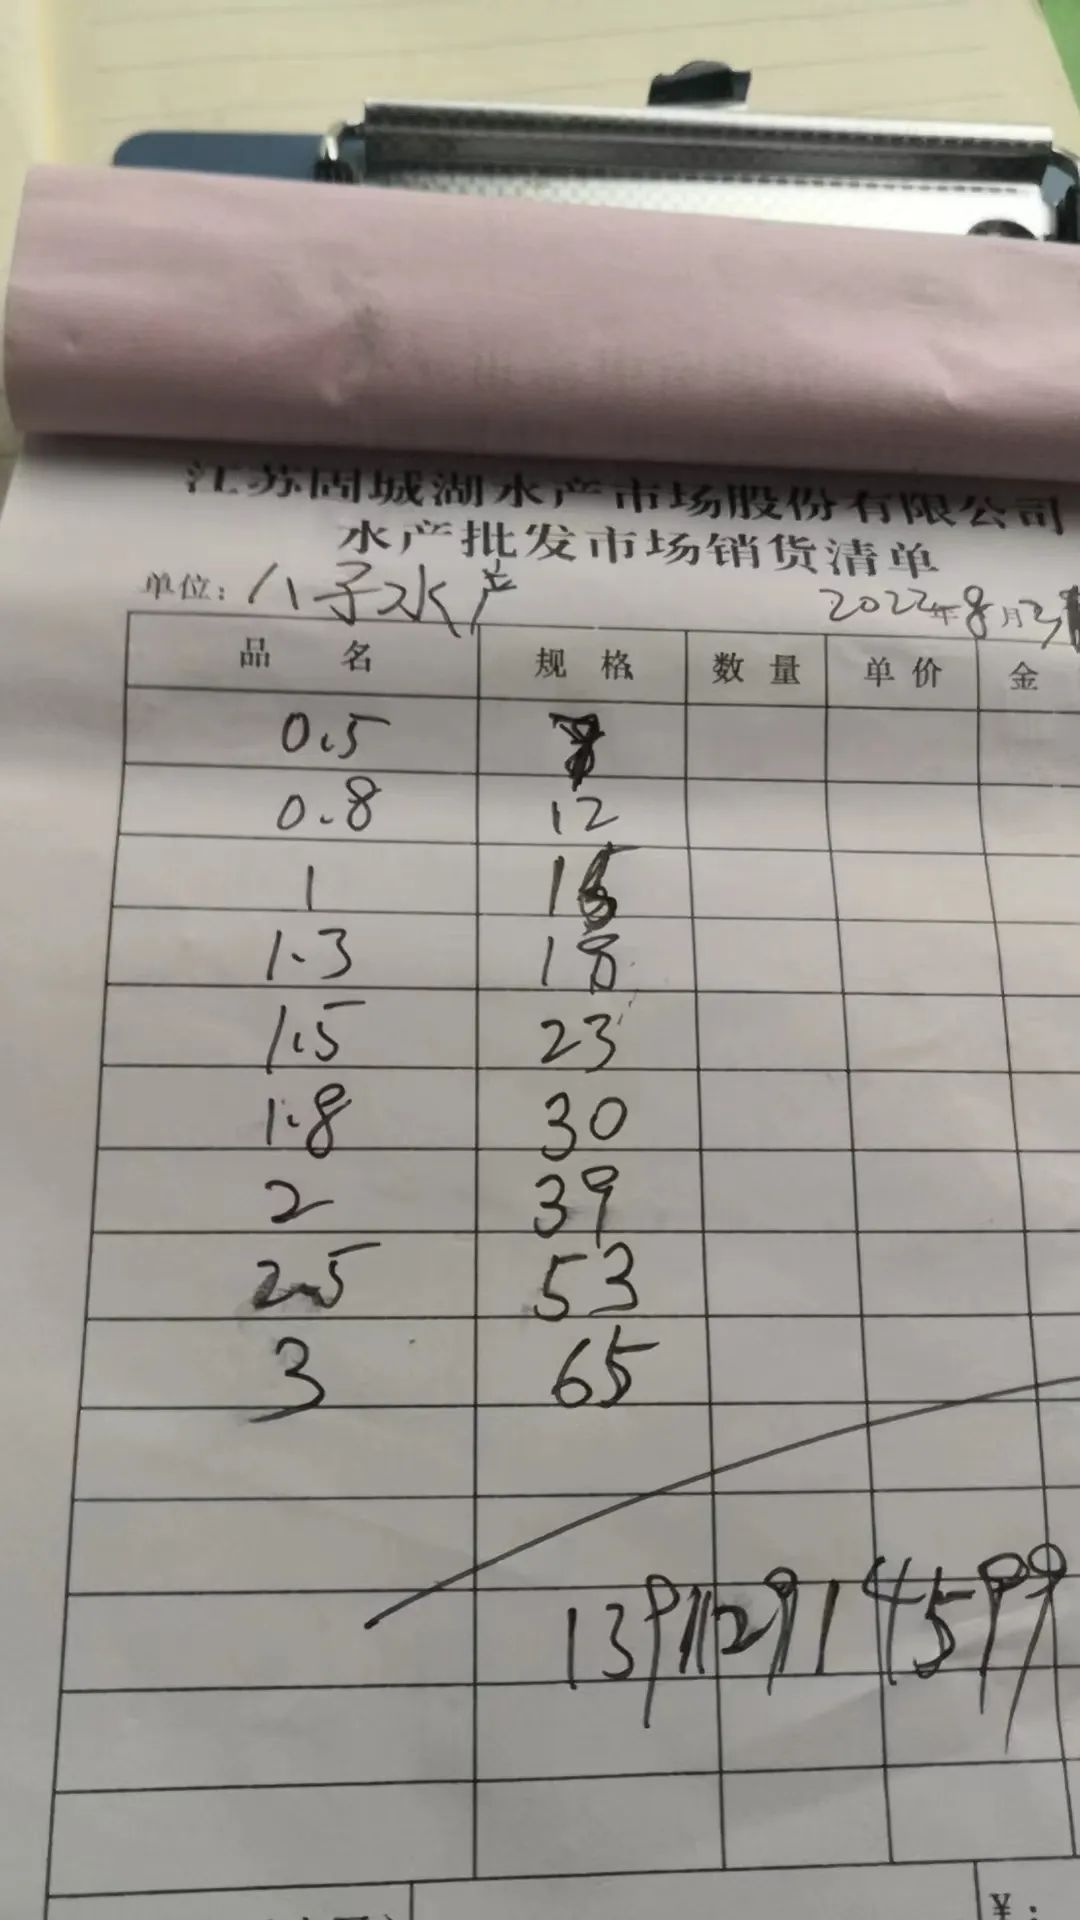 江苏固城湖水产市场股份有限公司
水产批发市场销货清单
单位：八子水产 2022年8月31
品名 规格 数量 单价 金
0.5
0.8 12
1 15
1.3 18
1.5 23
1.8 30
2 39
2.5 53
3 65
¥：